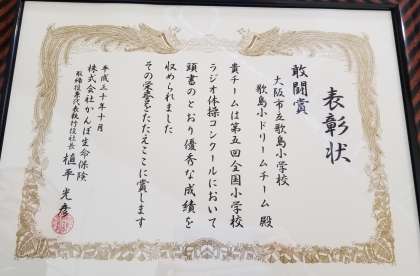 表彰状
敢闘賞
大阪市立歌島小学校
歌島小ドリームチーム 殿
貴チームは第五回全国小学校
ラジオ体操コンクールにおいて
頭書のとおり優秀な成績を
収められました
その栄誉をたたえここに賞します
平成三十年十月
株式会社かんぽ生命保険
取締役兼代表執行役社長 植平光彦